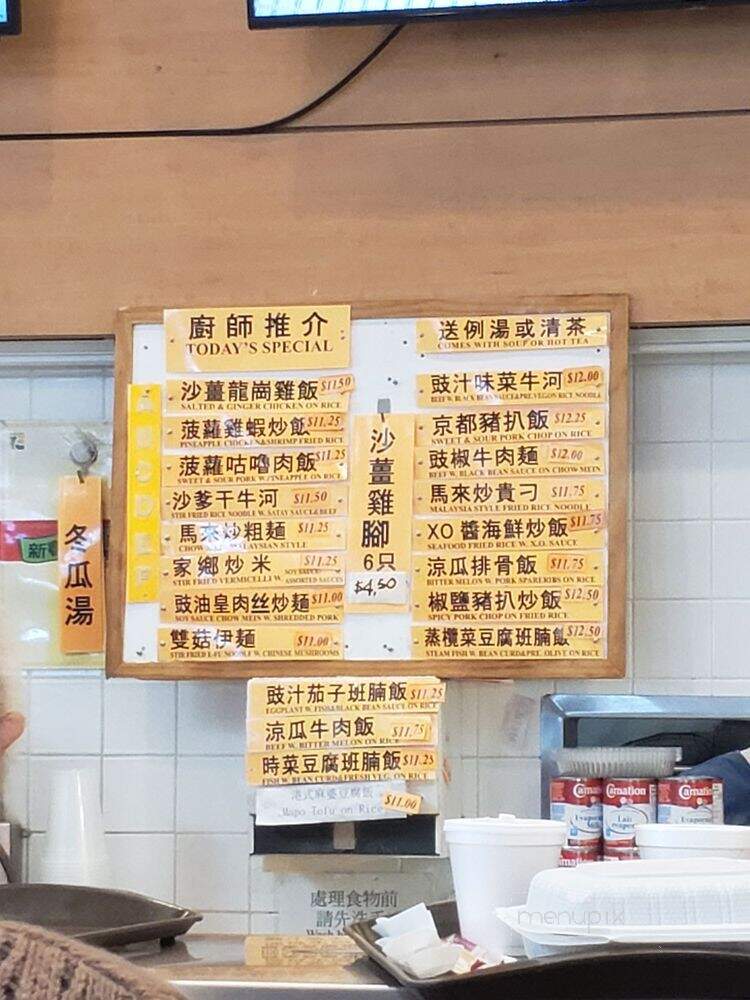 廚師推介
TODAY'S SPECIAL
沙薑龍崗雞飯 $11.50
SALTED & GINGER CHICKEN ON RICE
菠蘿雞蝦炒飯 $11.25
PINEAPPLE CHICKEN&SHRIMP FRIED RICE
菠蘿咕嚕肉飯 $11.25
SWEET & SOUR PORK W/PINEAPPLE ON RICE
沙爹干牛河 $11.50
STIR FRIED RICE NOODLE W. SATAY SAUCE&BEEF
馬來炒粗麵 $11.25
MALAYSIAN STYLE
家鄉炒米 $11.25
STIR FRIED VERMICELLI W. ASSORTED SAUCES
豉油皇肉丝炒麵 $11.00
SOY SAUCE CHOW MEIN W. SHREDDED PORK
雙菇伊麵 $11.00
STIR FRIED E-FU NOODLE W. CHINESE MUSHROOMS
沙薑雞腳
6只
$4.50
送例湯或清茶
COMES WITH SOUP OR HOT TEA
豉汁味菜牛河 $12.00
京都豬扒飯 $12.25
SWEET & SOUR PORK CHOP ON RICE
豉椒牛肉麵 $12.00
BEEF W. BLACK BEAN SAUCE ON CHOW MEIN
馬來炒貴刁 $11.75
MALAYSIA STYLE FRIED RICE NOODLE
XO 醬海鮮炒飯 $11.75
SEAFOOD FRIED RICE W. X.O. SAUCE
涼瓜排骨飯 $11.75
BITTER MELON W. PORK SPARERIBS ON RICE
椒鹽豬扒炒飯 $12.50
SPICY PORK CHOP ON FRIED RICE
蒸欖菜豆腐班腩飯 $12.50
STEAM FISH W. BEAN CURD&PRE. OLIVE ON RICE
冬瓜湯
豉汁茄子班腩飯 $11.25
EGGPLANT W. FISH&BLACK BEAN SAUCE ON RICE
涼瓜牛肉飯 $11.75
BEEF W. BITTER MELON ON RICE
時菜豆腐班腩飯 $11.25
FISH W. BEAN CURD&FRESH VEG. ON RICE
港式麻婆豆腐飯
Mapo Tofu on Rice $11.00
處理食物前
請先洗手
Carnation
Carnation
Carnation
Lait
menupix